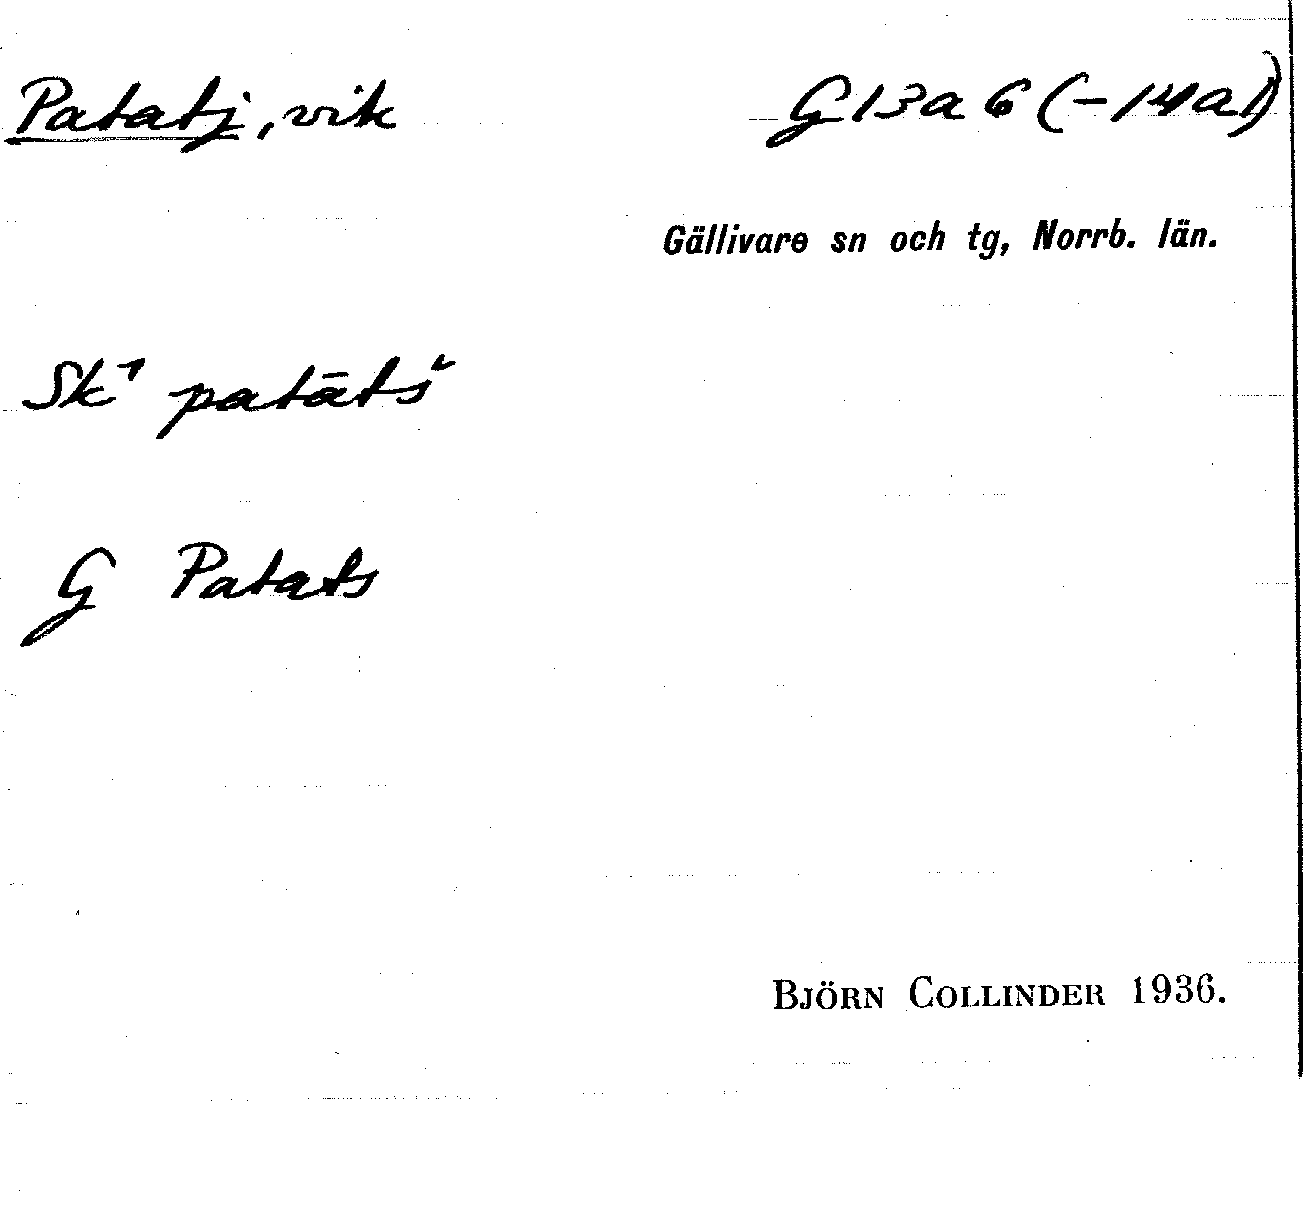 Patatj, vik G 13 a 6 (-14 a 1)
Gällivare sn och tg, Norrb. län.
Sk¹ patātš
G Patats
BJÖRN COLLINDER 1936.